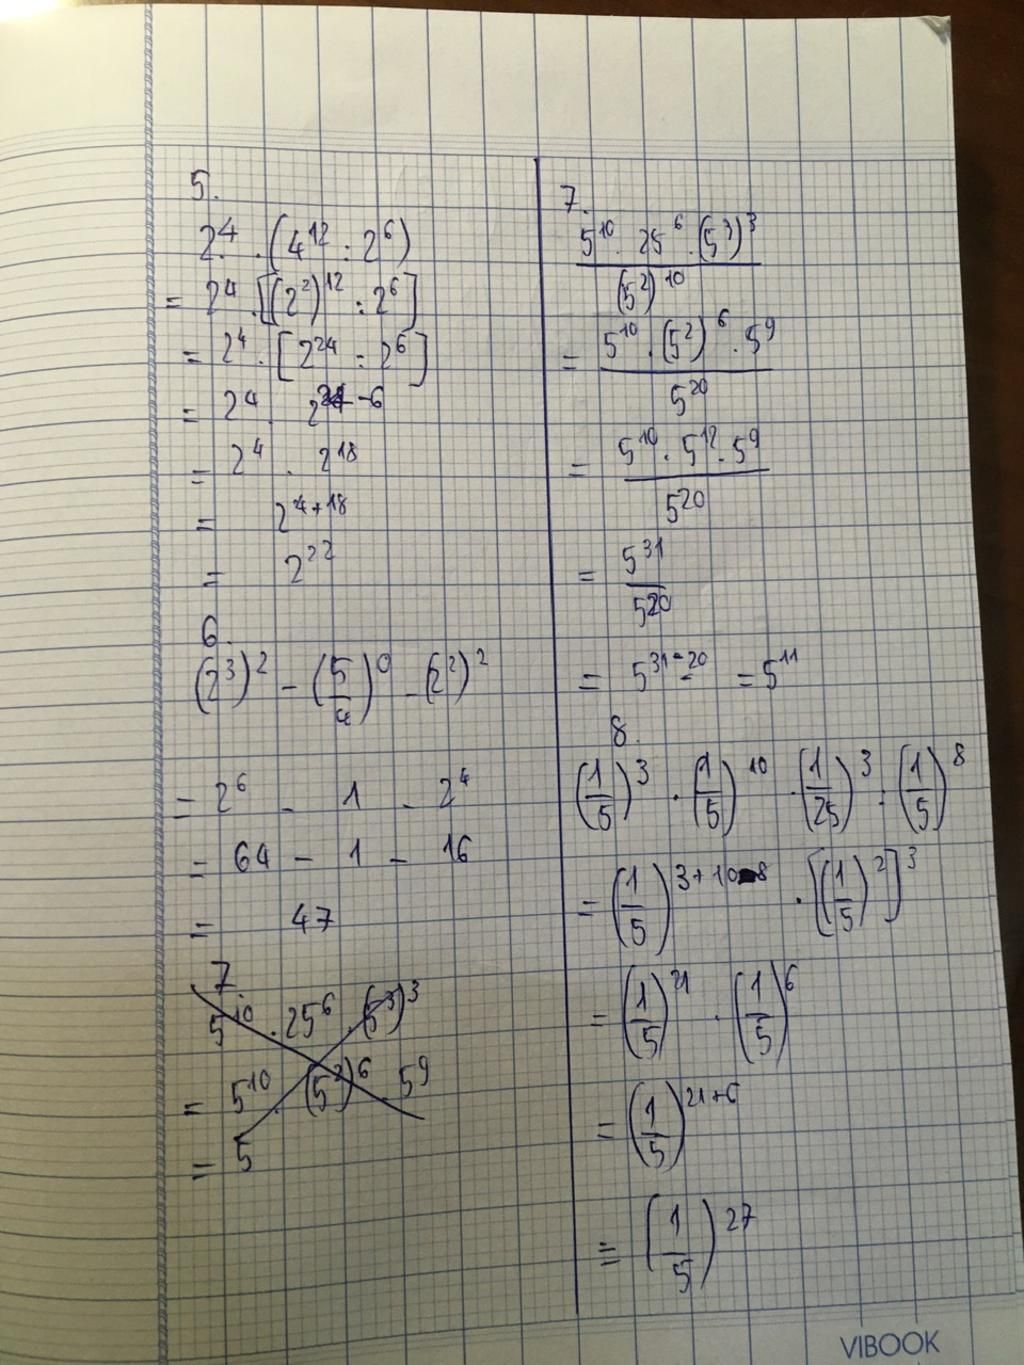 5.
2⁴ . (4¹² : 2⁶)
= 2⁴ . [(2²)¹² : 2⁶]
= 2⁴ . [2²⁴ : 2⁶]
= 2⁴ . 2²⁴⁻⁶
= 2⁴ . 2¹⁸
= 2⁴⁺¹⁸
= 2²²
6.
(2³)² - (5/4)⁰ - (2²)²
= 2⁶ - 1 - 2⁴
= 64 - 1 - 16
= 47
7
5¹⁰ . 25⁶ . (5³)³
= 5¹⁰ . (5²)⁶ . 5⁹
= 5
7.
5¹⁰ . 25⁶ . (5³)³ / (5²)¹⁰
= 5¹⁰ . (5²)⁶ . 5⁹ / 5²⁰
= 5¹⁰ . 5¹² . 5⁹ / 5²⁰
= 5³¹ / 5²⁰
= 5³¹⁻²⁰ = 5¹¹
8.
(1/5)³ . (1/5)¹⁰ . (1/25)³ : (1/5)⁸
= (1/5)³⁺¹⁰⁻⁸ . [(1/5)²]³
= (1/5)²¹ . (1/5)⁶
= (1/5)²¹⁺⁶
= (1/5)²⁷
VIBOOK